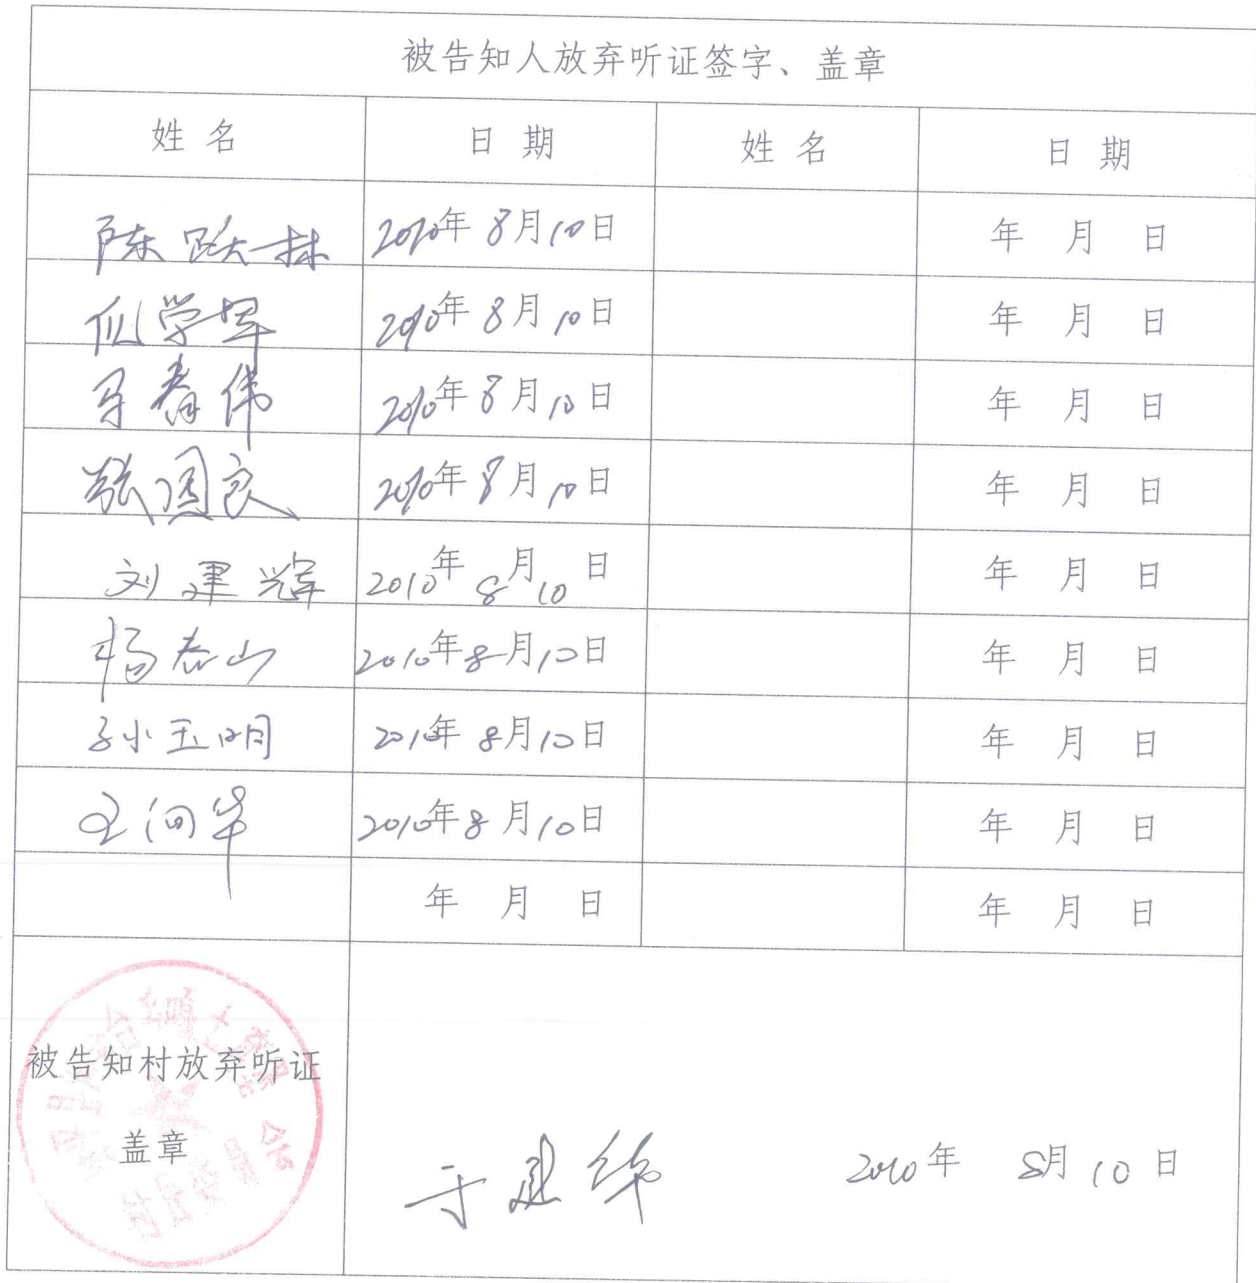 被告知人放弃听证签字、盖章
姓名 日期 姓名 日期
陈跃林 2010年8月10日 年 月 日
学军 2010年8月10日 年 月 日
马春伟 2010年8月10日 年 月 日
张国良 2010年8月10日 年 月 日
刘建辉 2010年8月10日 年 月 日
杨春山 2010年8月10日 年 月 日
孙玉明 2010年8月10日 年 月 日
王向华 2010年8月10日 年 月 日
年 月 日 年 月 日
被告知村放弃听证
盖章
于建华 2010年 8月10日